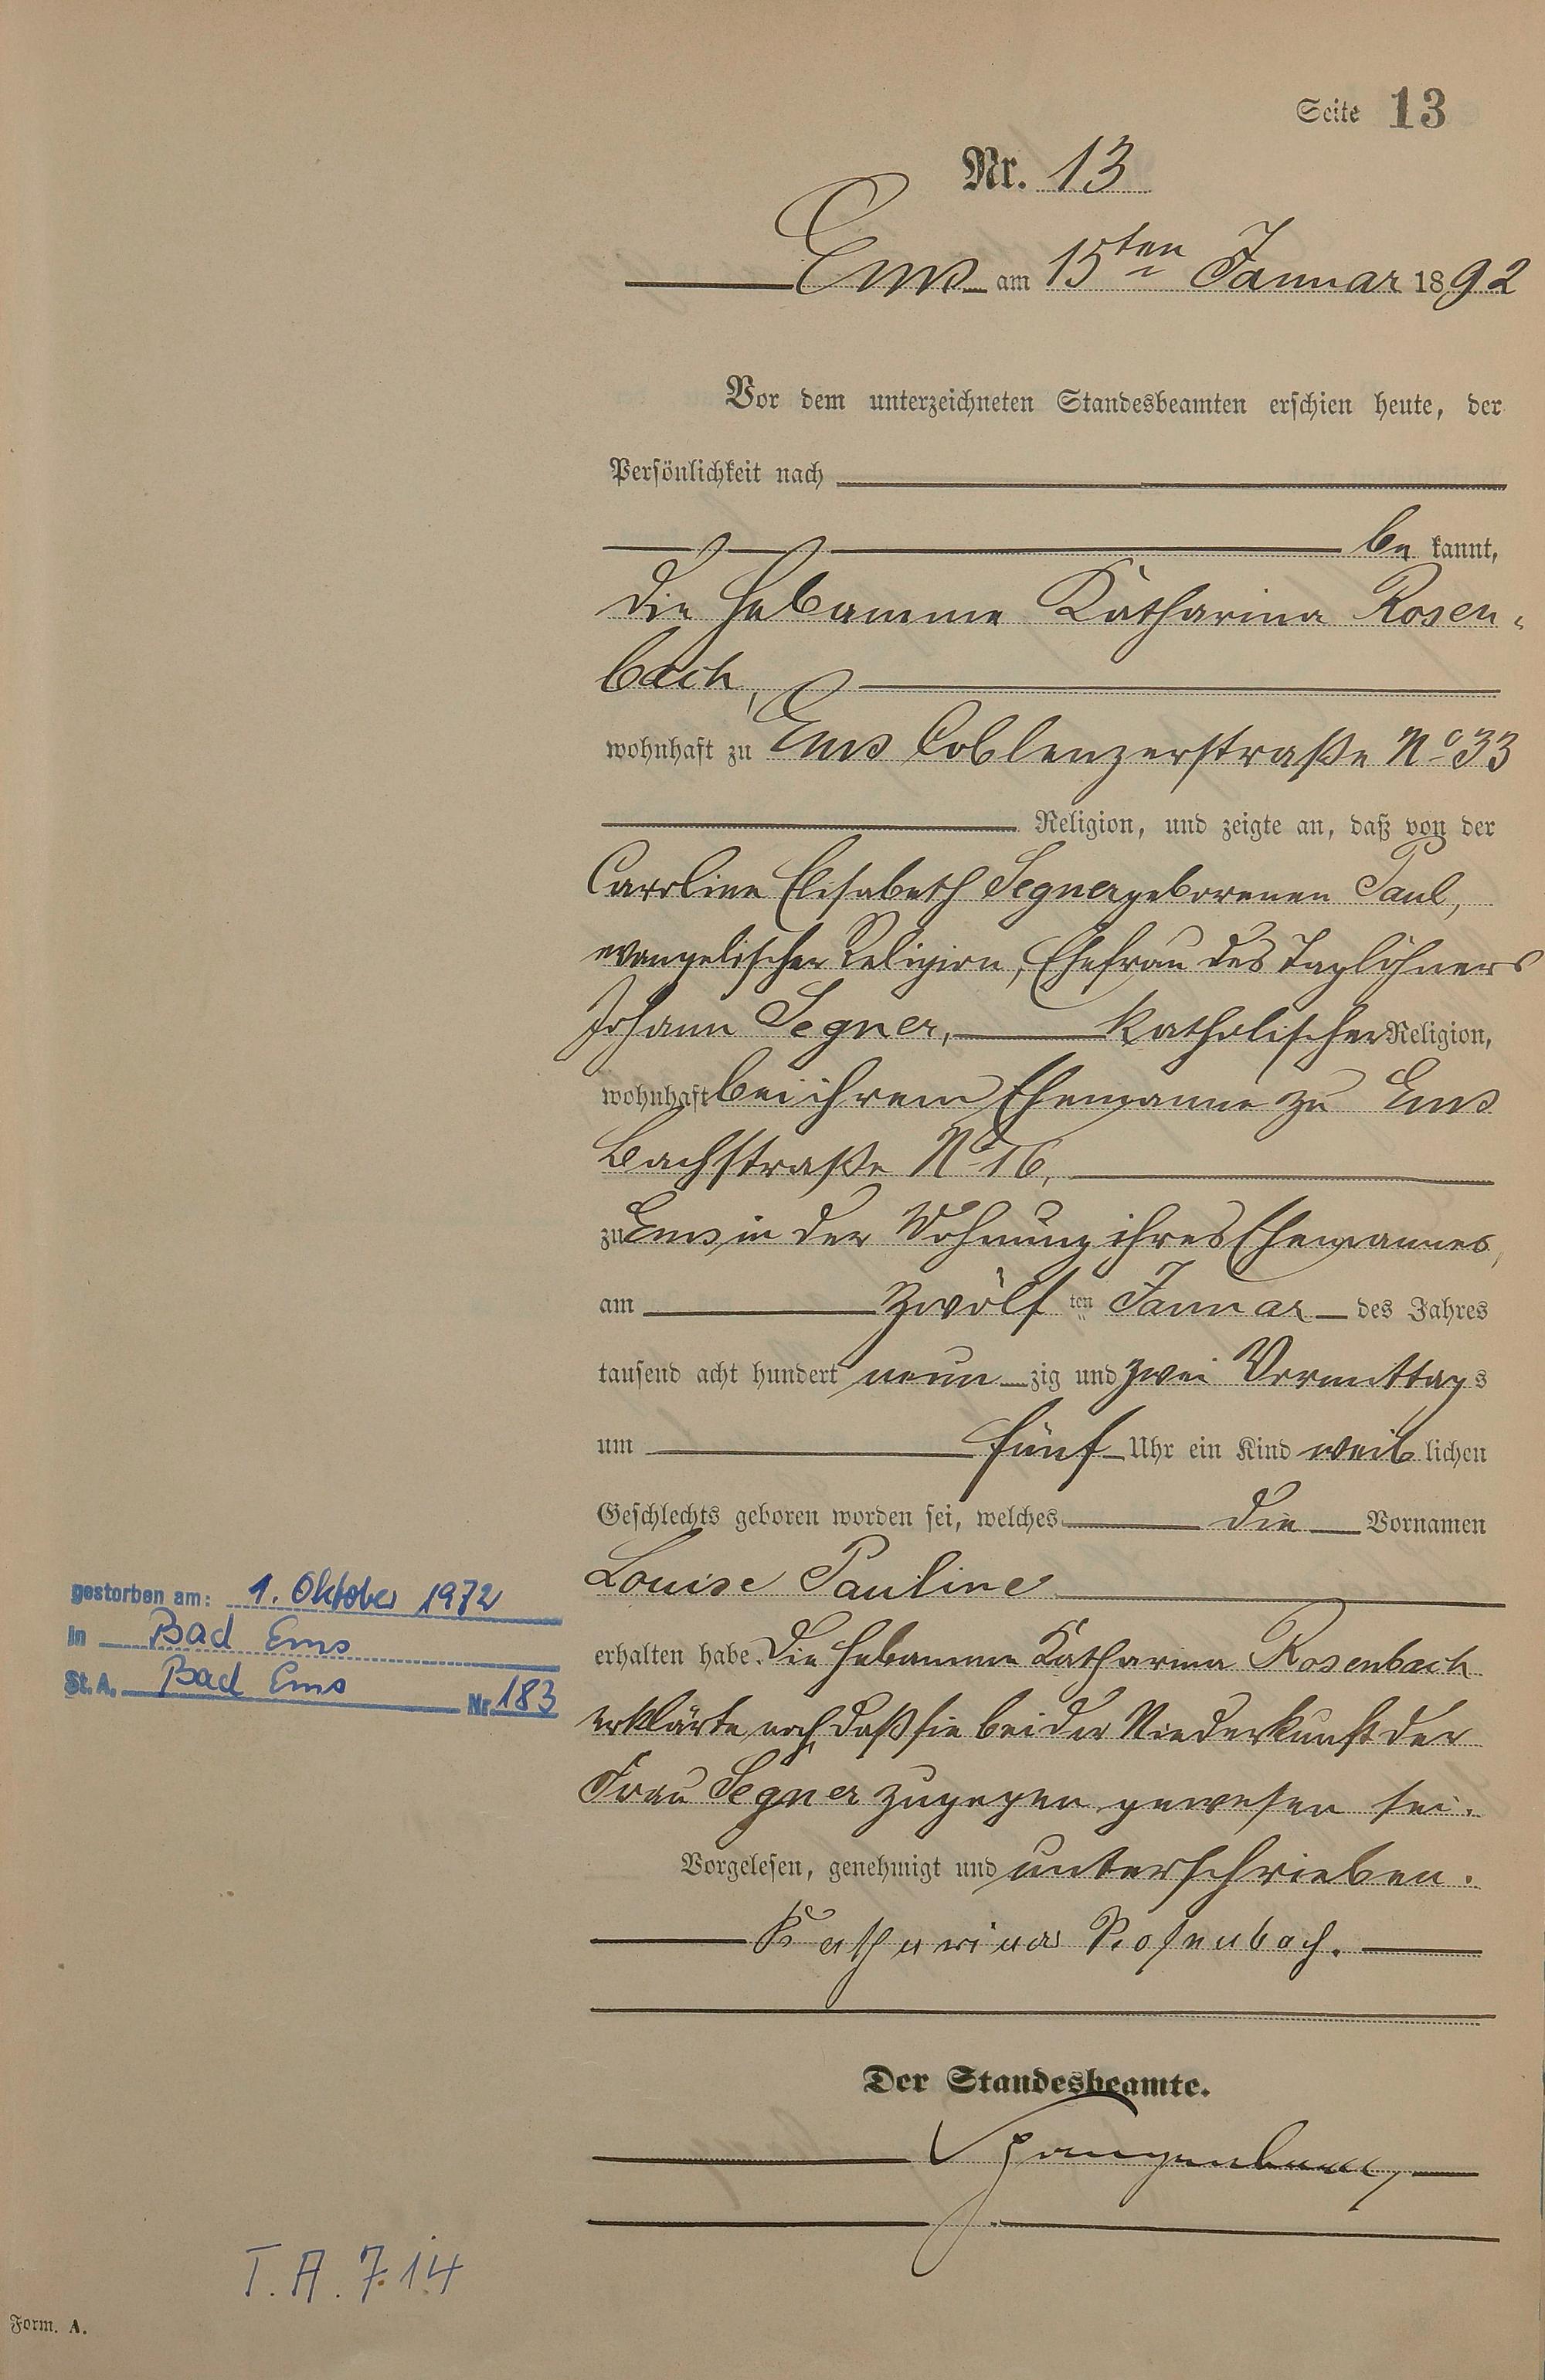 Seite 13
Nr. 13
Ems am 15ten Januar 1892
Vor dem unterzeichneten Standesbeamten erschien heute, der
Persönlichkeit nach
be kannt,
die Hebamme Katharina Rosen-
bach,
wohnhaft zu Ems Coblenzerstraße No 33
Religion, und zeigte an, daß von der
Caroline Elisabeth Segner geborenen Paul,
evangelischer Religion, Ehefrau des Taglöhners
Johann Segner, katholischer Religion,
wohnhaft bei ihrem Ehemanne zu Ems
Bachstraße No 16,
zu Ems in der Wohnung ihres Ehemannes,
am zwölf ten Januar des Jahres
tausend acht hundert neun zig und zwei Vormittags
um fünf Uhr ein Kind weib lichen
Geschlechts geboren worden sei, welches die Vornamen
Louise Pauline
erhalten habe. Die Hebamme Katharina Rosenbach
erklärte noch, daß sie bei der Niederkunft der
Frau Segner zugegen gewesen sei.
Vorgelesen, genehmigt und unterschrieben.
Katharina Rosenbach.
Der Standesbeamte.
gestorben am: 1. Oktober 1972
in Bad Ems
St. A. Bad Ems Nr. 183
T. A. 7.14
Form. A.